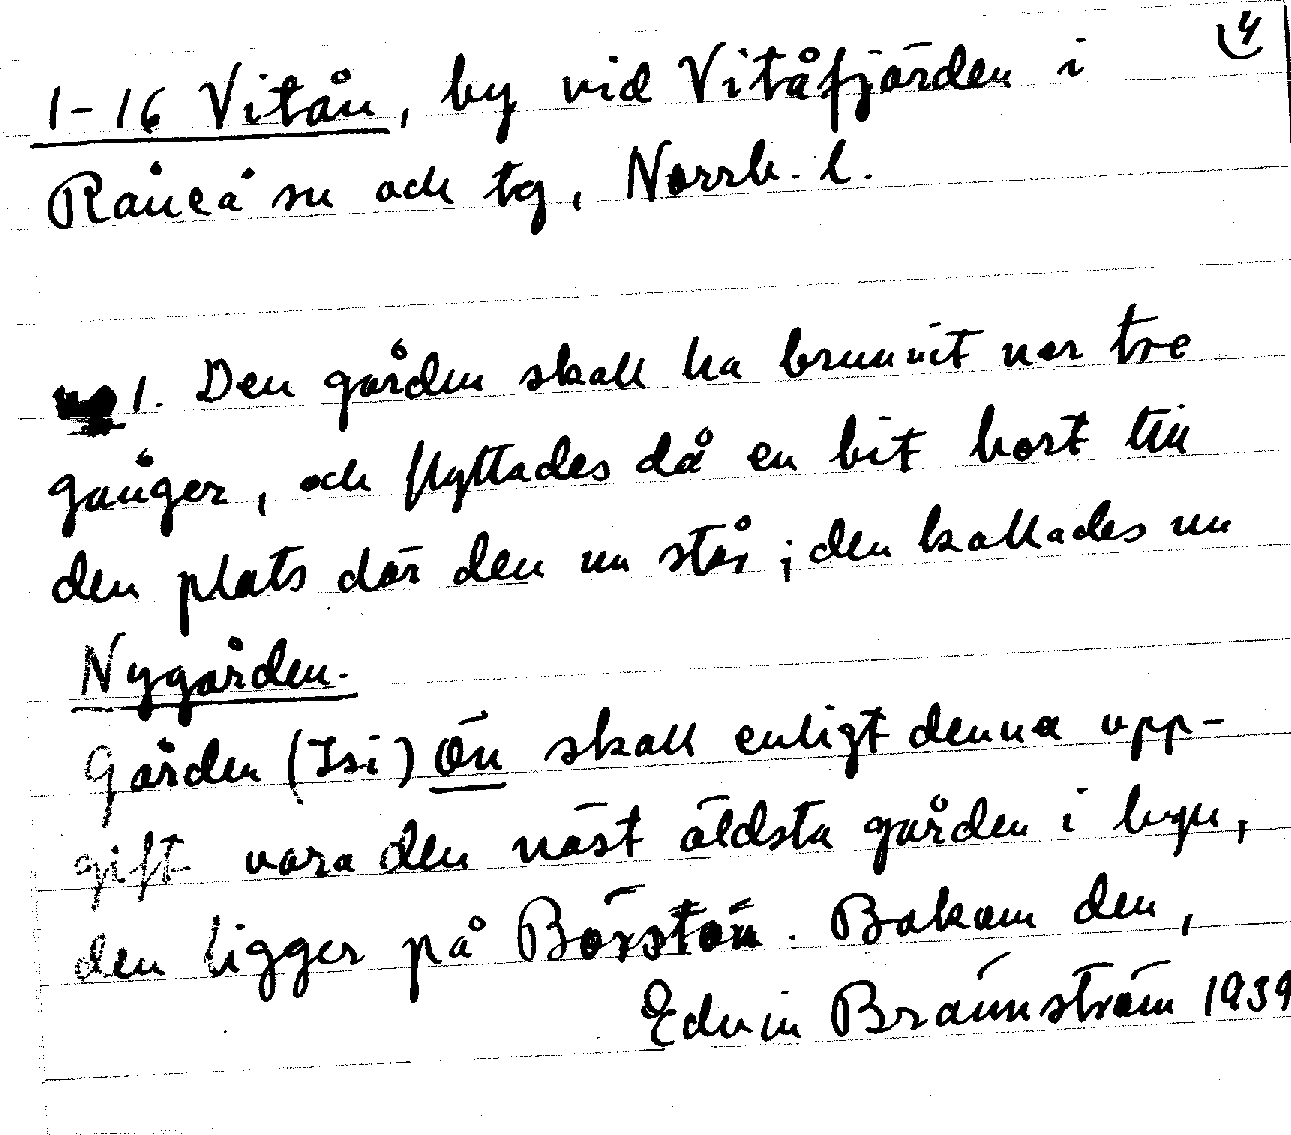 4
1-16 Vitån, by vid Vitåfjärden i
Råneå sn och tg, Norrb. l.
1. Den gården skall ha brunnit ner tre
gånger, och flyttades då en bit bort till
den plats där den nu står; den kallades nu
Nygården.
Gården (Isi) Ön skall enligt denna upp-
gift vara den näst äldsta gården i byn,
den ligger på Börstön. Bakom den,
Edvin Brännström 1939